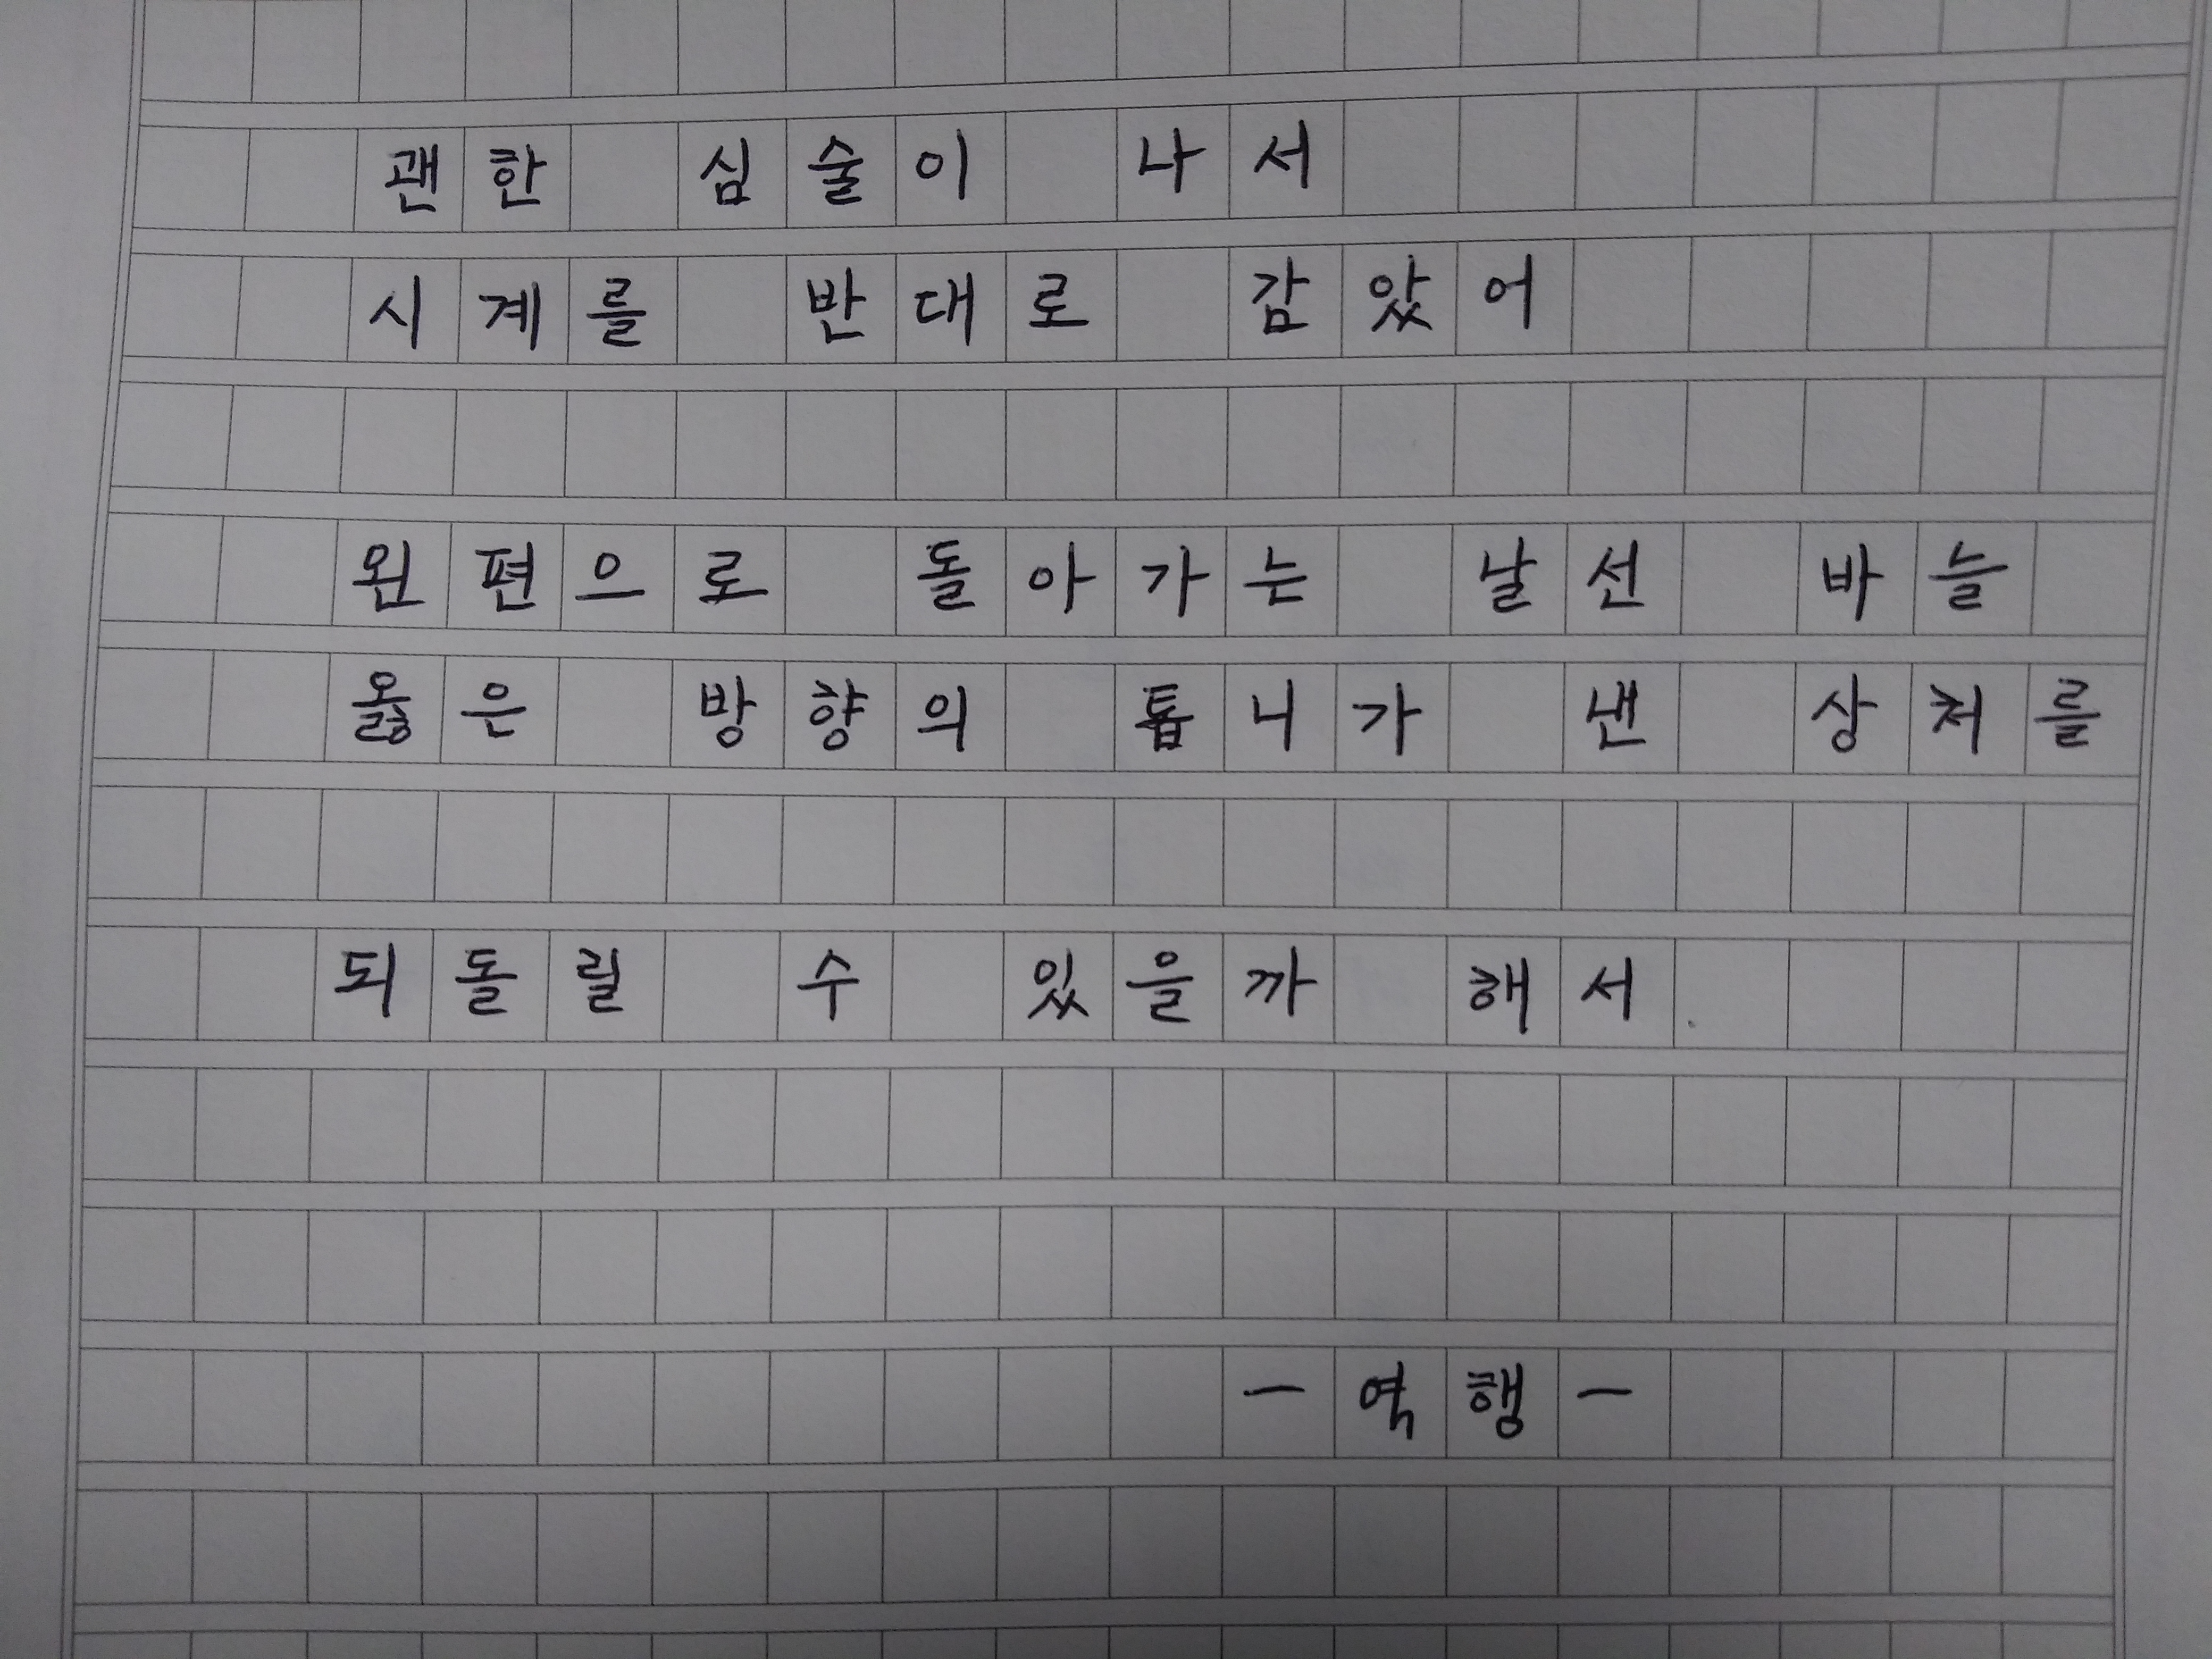 괜한 심술이 나서
시계를 반대로 감았어
왼편으로 돌아가는 날선 바늘
옳은 방향의 톱니가 낸 상처를
되돌릴 수 있을까 해서
- 역행 -